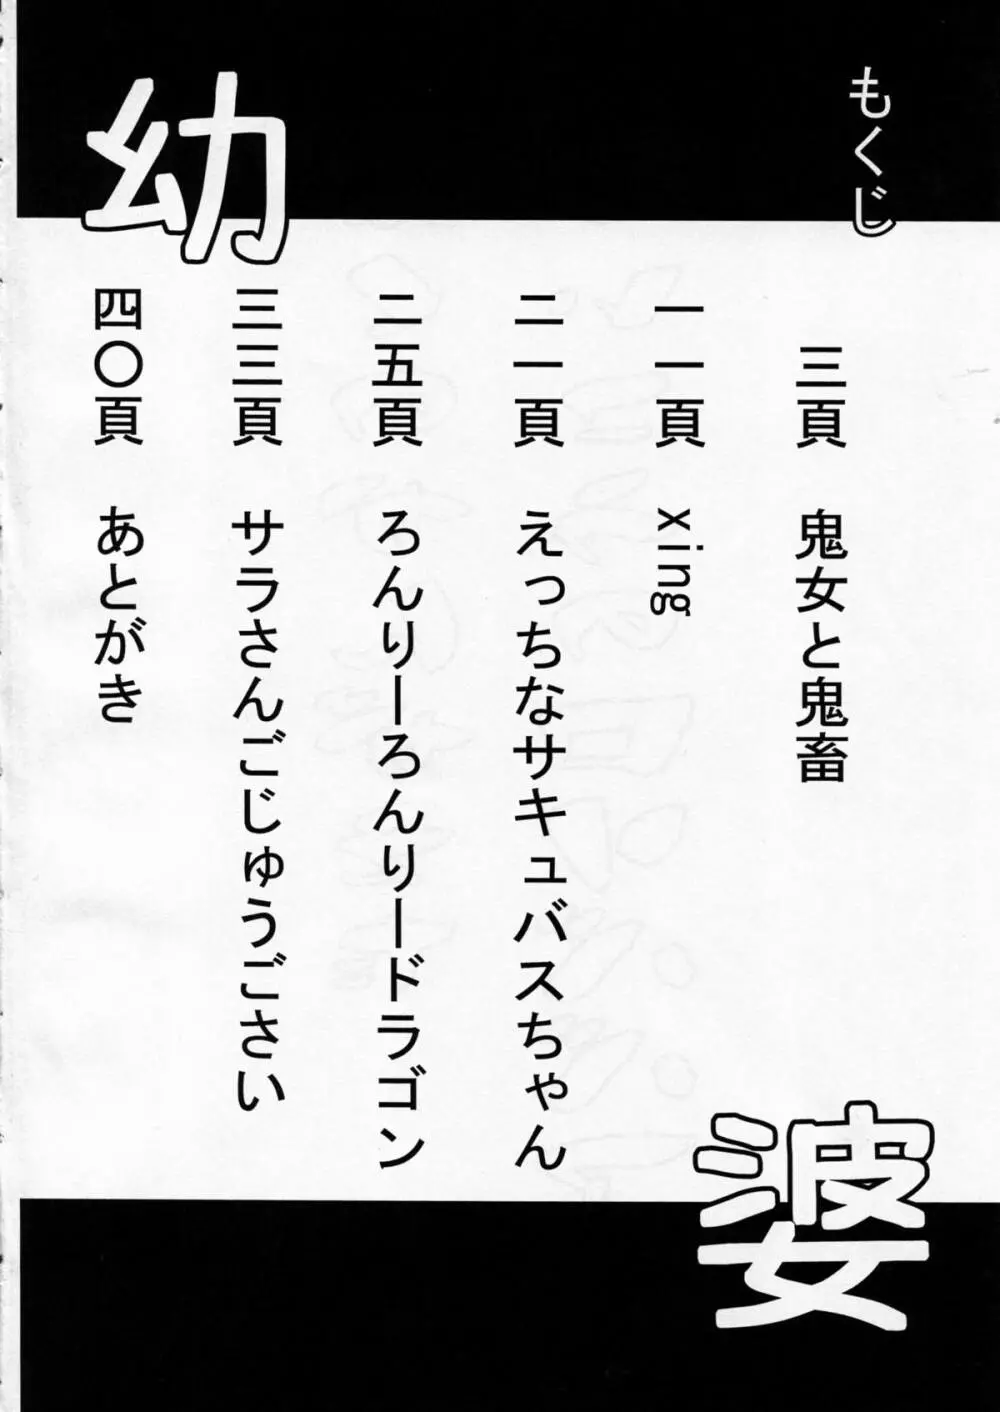 もくじ
三頁 鬼女と鬼畜
一一頁 xing
二一頁 えっちなサキュバスちゃん
二五頁 ろんりーろんりードラゴン
三三頁 サラさんごじゅうごさい
四〇頁 あとがき
幼
婆